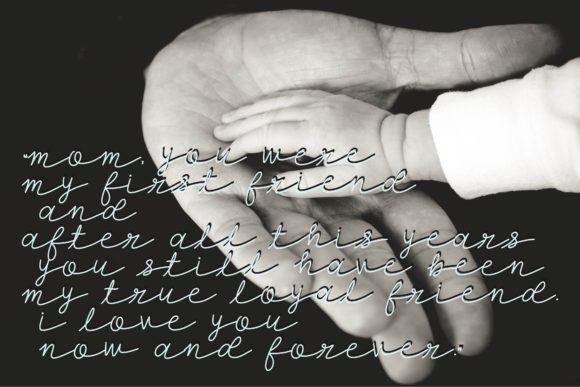 "mom, you were
my first friend
and
after all this years
you still have been
my true loyal friend.
i love you
now and forever."